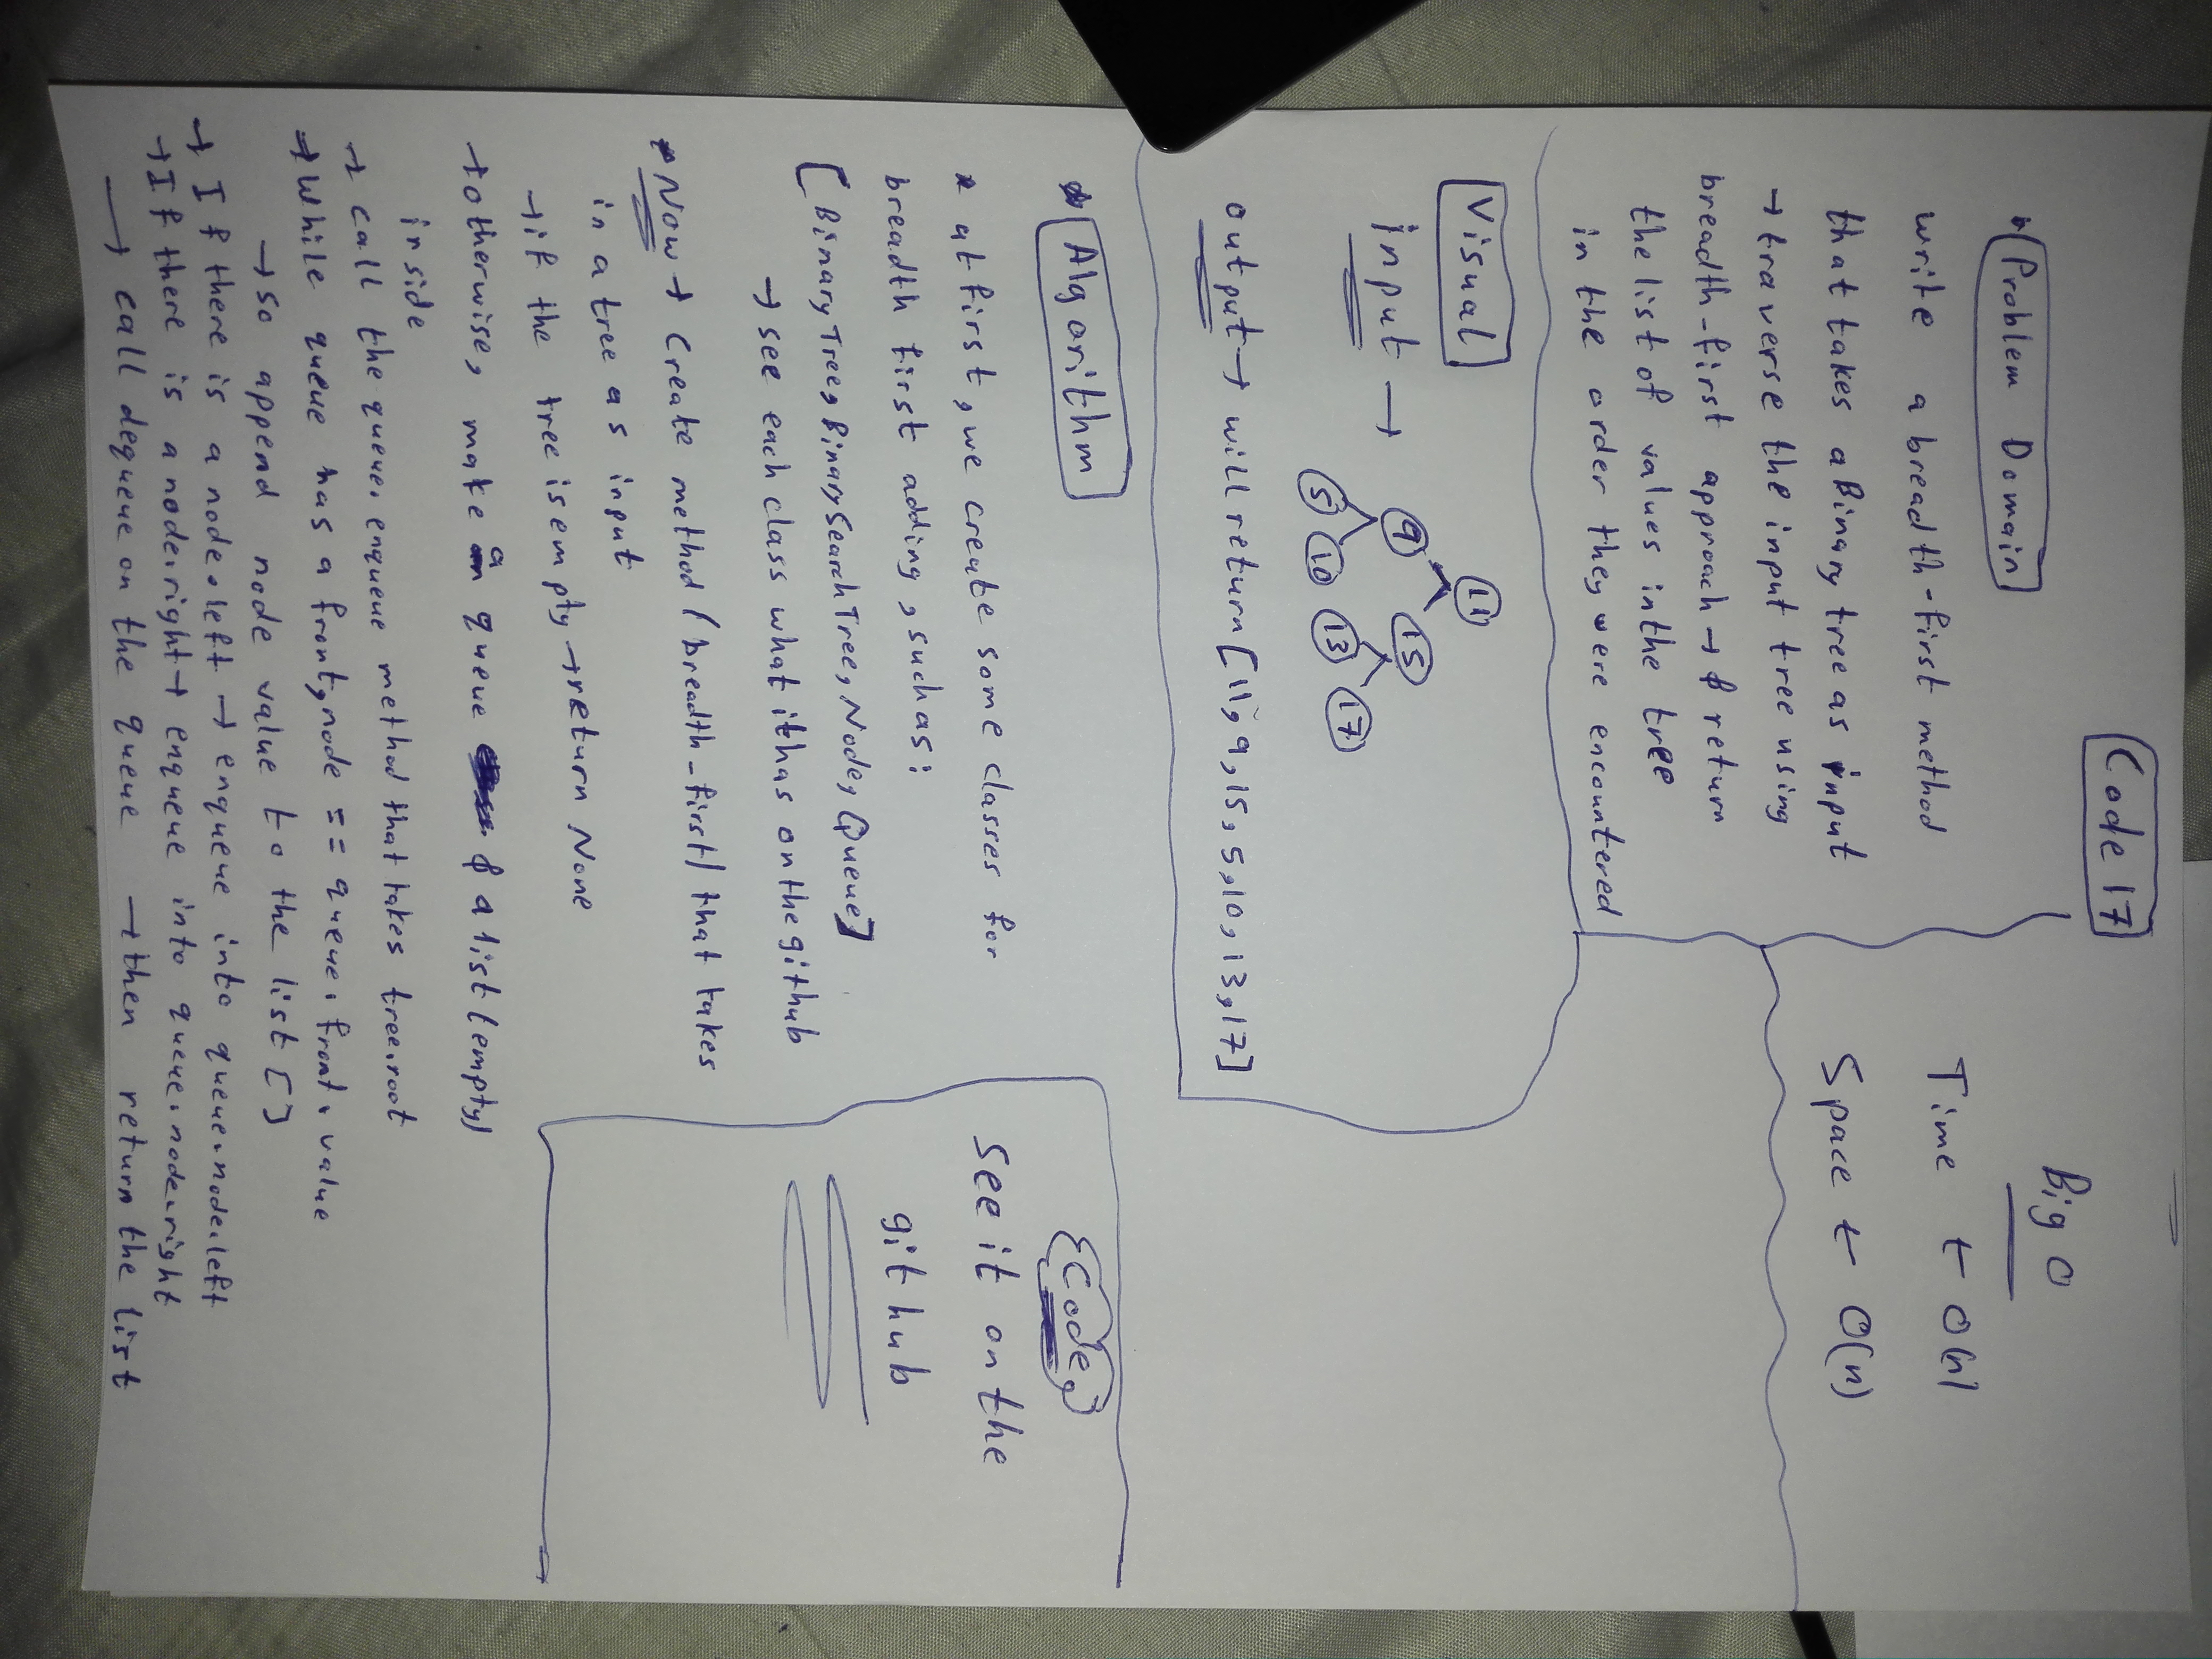 Code 17
* Problem Domain
write a breadth-first method
that takes a Binary tree as input
→ traverse the input tree using
breadth-first approach → & return
the list of values in the tree
in the order they were encountered
Big O
Time ← O(n)
Space ← O(n)
Visual
input →
11
9 15
5 10 13 17
output → will return [11, 9, 15, 5, 10, 13, 17]
* Algorithm
* at first, we create some classes for
breadth first adding, such as:
[BinaryTree, BinarySearchTree, Node, Queue]
→ see each class what it has on the github
* Now → Create method (breadth-first) that takes
in a tree as input
→ if the tree is empty → return None
→ otherwise, make a queue & a list (empty)
inside
→ call the queue.enqueue method that takes tree.root
→ While queue has a front, node == queue.front.value
→ so append node value to the list []
→ If there is a node.left → enqueue into queue.node.left
→ If there is a node.right → enqueue into queue.node.right
→ call dequeue on the queue → then return the list
{Code}
see it on the
github